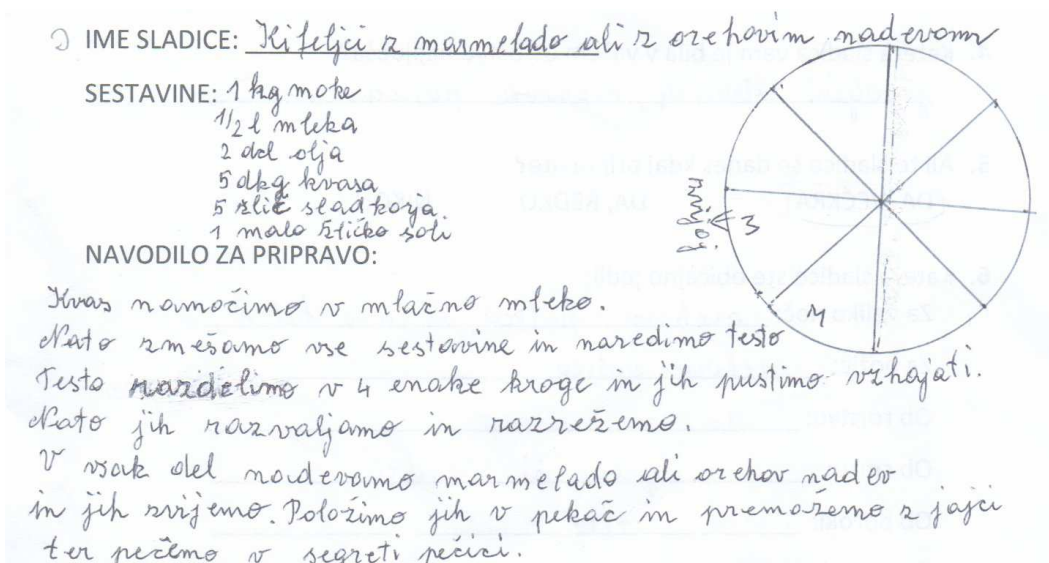 IME SLADICE: Kifeljci z marmelado ali z orehovim nadevom
SESTAVINE: 1 kg moke
1/2 l mleka
2 del olja
5 dkg kvasa
5 žlic sladkorja
1 malo žličko soli
NAVODILO ZA PRIPRAVO:
Kvas namočimo v mlačno mleko.
Nato zmešamo vse sestavine in naredimo testo
Testo razdelimo v 4 enake kroge in jih pustimo vzhajati.
Nato jih razvaljamo in razrežemo.
V vsak del nadevamo marmelado ali orehov nadev
in jih zvijemo. Položimo jih v pekač in premažemo z jajci
ter pečemo v segreti pečici.